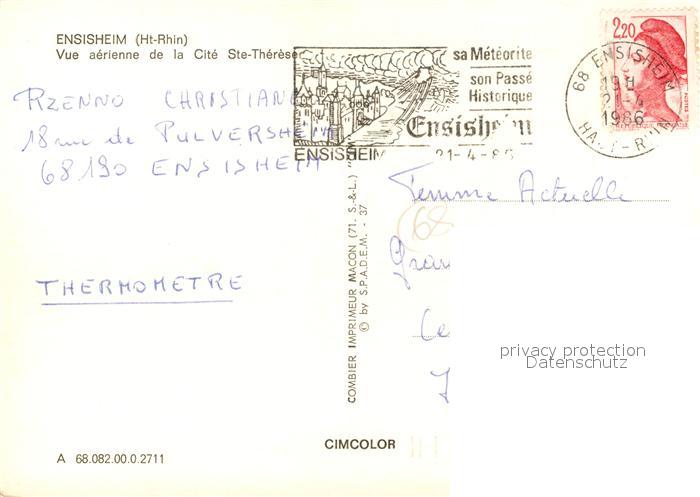 ENSISHEIM (Ht-Rhin)
Vue aérienne de la Cité Ste-Thérèse
RZENNO CHRISTIANE
18 rue de PULVERSHEIM
68190 ENSISHEIM
THERMOMETRE
A 68.082.00.0.2711
COMBIER IMPRIMEUR MACON (71. S.-&-L.)
© by S.P.A.D.E.M. - 37
CIMCOLOR
sa Météorite
son Passé
Historique
Ensisheim
ENSISHEIM 21-4-86
2,20
68 ENSISHEIM
21-4
1986
HAUT-RHIN
Femme Actuelle
(68
privacy protection
Datenschutz